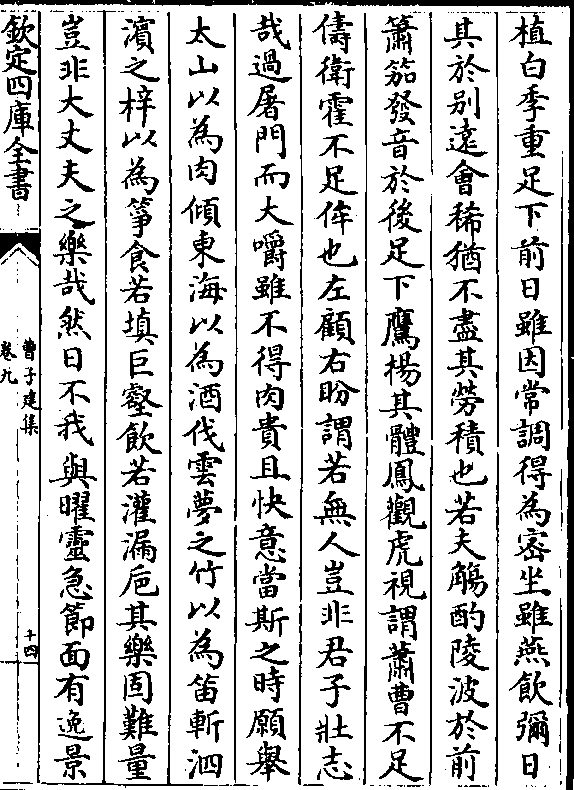 植白季重足下前日雖因常調得為密坐雖燕飲彌日
其於别遠㑹稀猶不盡其勞積也若夫觴酌陵波於前
簫笳發音於後足下鷹揚其體鳳觀虎視謂蕭曹不足
儔衛霍不足侔也左顧右盼謂若無人豈非君子壯志
哉過屠門而大嚼雖不得肉貴且快意當斯之時願舉
太山以為肉傾東海以為酒伐雲夢之竹以為笛斬泗
濱之梓以為箏食若填巨壑飲若灌漏巵其樂固難量
豈非大丈夫之樂哉然日不我與曜靈急節面有逸景
欽定四庫全書
曹子建集
卷九
十四